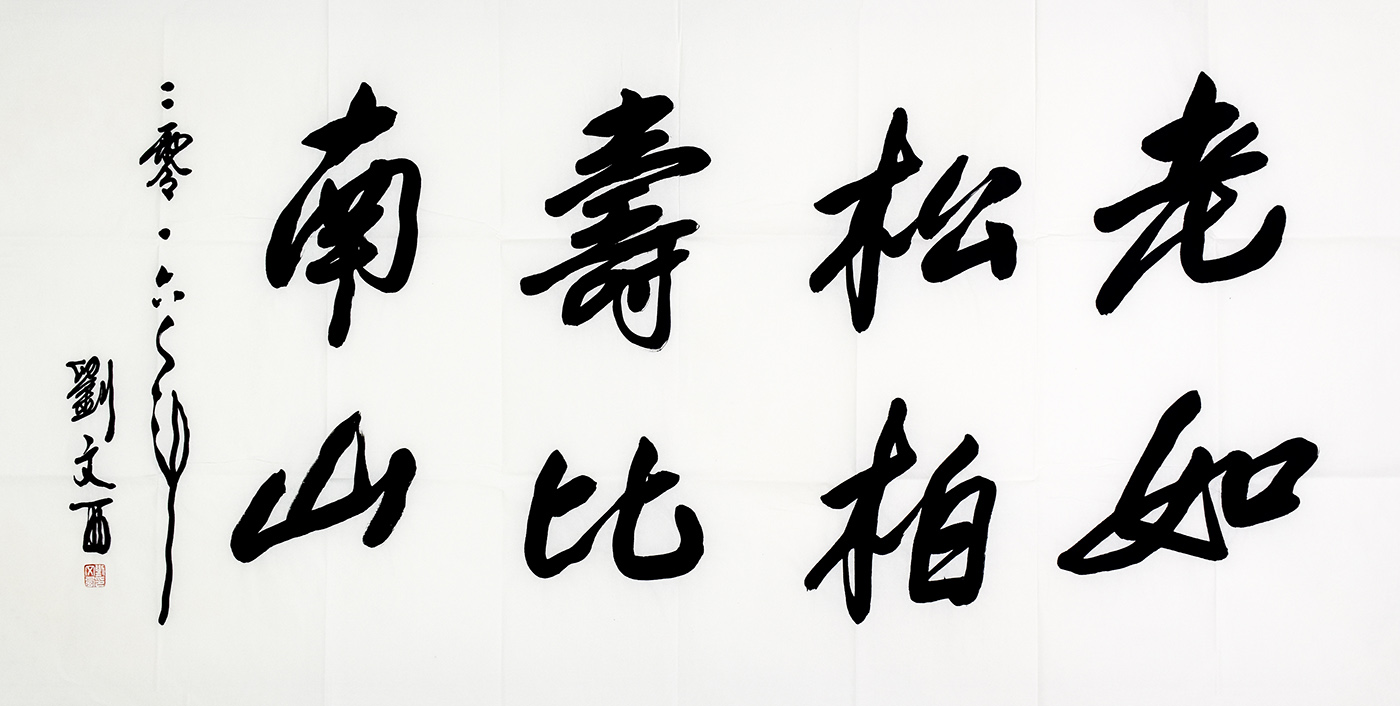 老如
松柏
壽比
南山
二零一六
劉文西